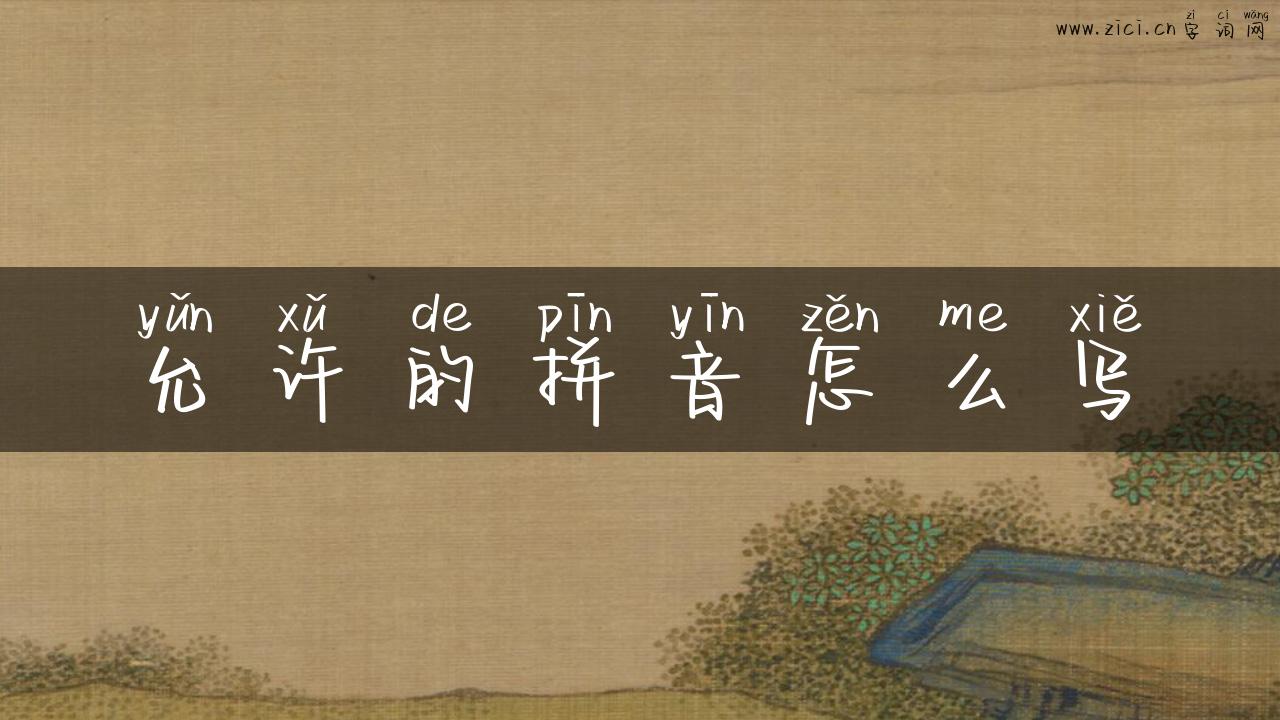 zì cí wǎng
www.zici.cn 字词网
yǔn xǔ de pīn yīn zěn me xiě
允许的拼音怎么写